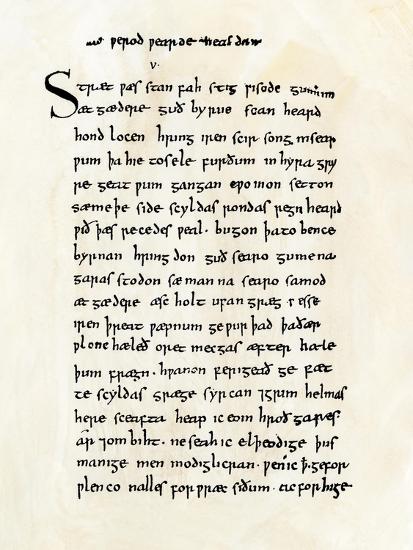 ƿerod ƿearde healdan
v.
Stræt ƿæs stan fah stig ƿisode gumum
æt gædere guð byrne scan heard
hond locen hring iren scir song in sear
ƿum þa hie to sele furðum in hyra gry
re geat ƿum gangan cƿomon setton
sæmeþe side scyldas rondas regn heard
ƿið þæs recedes ƿeal . bugon þa to bence
byrnan hring don guð searo gumena
garas stodon sæ man na searo samod
æt gædere æsc holt ufan græg . ƿæs se
iren þreat ƿæpnum ge ƿur þad þa ðær
ƿlonc hæleð oret mecgas æfter hæle
þum frægn . hƿanon ferigeað ge fæt
te scyldas græge syrcan ⁊ grim helmas
here sceafta heap ic eom hroð gares .
ar ⁊ om biht . ne seah ic elþeodige þus
manige men modiglicran . ƿen ic ꝥ . ge for
ƿlenco nalles for ƿræc siðum . ac for hige